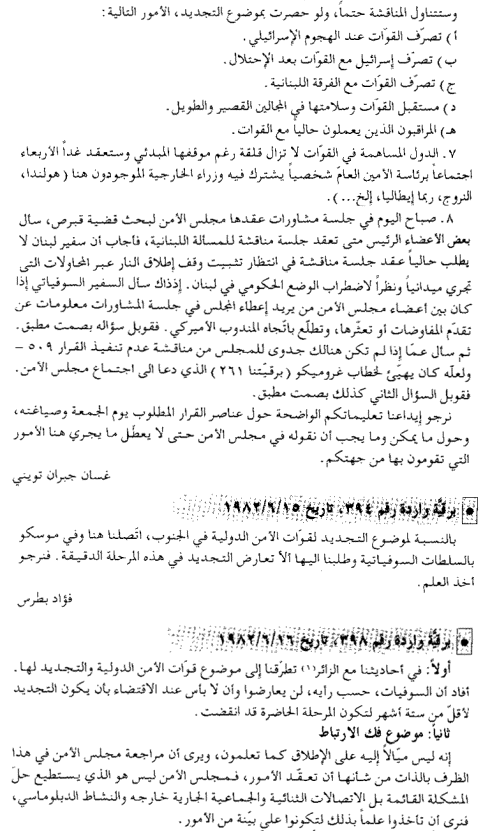 وستتناول المناقشة حتماً، ولو حصرت بموضوع التجديد، الأمور التالية:
أ) تصرّف القوّات عند الهجوم الإسرائيلي.
ب) تصرّف إسرائيل مع القوّات بعد الإحتلال.
ج) تصرّف القوّات مع الفرقة اللبنانية.
د) مستقبل القوّات وسلامتها في المجالين القصير والطويل.
هـ) المراقبون الذين يعملون حالياً مع القوات.
٧. الدول المساهمة في القوّات لا تزال قلقة رغم موقفها المبدئي وستعقد غداً الأربعاء
اجتماعاً برئاسة الأمين العامّ شخصياً يشترك فيه وزراء الخارجية الموجودون هنا (هولندا،
النروج، ربما إيطاليا، إلخ...).
٨. صباح اليوم في جلسة مشاورات عقدها مجلس الأمن لبحث قضية قبرص، سأل
بعض الأعضاء الرئيس متى تعقد جلسة مناقشة للمسألة اللبنانية، فأجاب أن سفير لبنان لا
يطلب حالياً عقد جلسة مناقشة في انتظار تثبيت وقف إطلاق النار عبر المحاولات التي
تجري ميدانياً ونظراً لاضطراب الوضع الحكومي في لبنان. إذذاك سأل السفير السوفياتي إذا
كان بين أعضاء مجلس الأمن من يريد إعطاء المجلس في جلسة المشاورات معلومات عن
تقدّم المفاوضات أو تعثّرها، وتطلّع باتّجاه المندوب الأميركي. فقوبل سؤاله بصمت مطبق.
ثم سأل عمّا إذا لم تكن هنالك جدوى للمجلس من مناقشة عدم تنفيذ القرار ٥٠٩ –
ولعلّه كان يهيّئ لخطاب غروميكو (برقيّتنا ٢٦١) الذي دعا الى اجتماع مجلس الأمن.
فقوبل السؤال الثاني كذلك بصمت مطبق.
نرجو إيداعنا تعليماتكم الواضحة حول عناصر القرار المطلوب يوم الجمعة وصياغته،
وحول ما يمكن وما يجب أن نقوله في مجلس الأمن حتى لا يعطّل ما يجري هنا الأمور
التي تقومون بها من جهتكم.
غسان جبران تويني
• برقيّة واردة رقم ٣٩٤، تاريخ ١٩٨٢/٦/١٥
بالنسبة لموضوع التجديد لقوّات الأمن الدولية في الجنوب، اتّصلنا هنا وفي موسكو
بالسلطات السوفياتية وطلبنا اليها ألاّ تعارض التجديد في هذه المرحلة الدقيقة. فنرجو
أخذ العلم.
فؤاد بطرس
• برقيّة واردة رقم ٣٩٨، تاريخ ١٩٨٢/٦/١٦
أولاً: في أحاديثنا مع الزائر(١) تطرّقنا إلى موضوع قوّات الأمن الدولية والتجديد لها.
أفاد أن السوفيات، حسب رأيه، لن يعارضوا وأن لا بأس عند الاقتضاء بأن يكون التجديد
لأقلّ من ستة أشهر لتكون المرحلة الحاضرة قد انقضت.
ثانياً: موضوع فك الارتباط
إنه ليس ميّالاً إليه على الإطلاق كما تعلمون، ويرى أن مراجعة مجلس الأمن في هذا
الظرف بالذات من شأنها أن تعقّد الأمور، فمجلس الأمن ليس هو الذي يستطيع حلّ
المشكلة القائمة بل الاتصالات الثنائية والجماعية الجارية خارجه والنشاط الدبلوماسي،
فنرى أن تأخذوا علماً بذلك لتكونوا على بيّنة من الأمور.